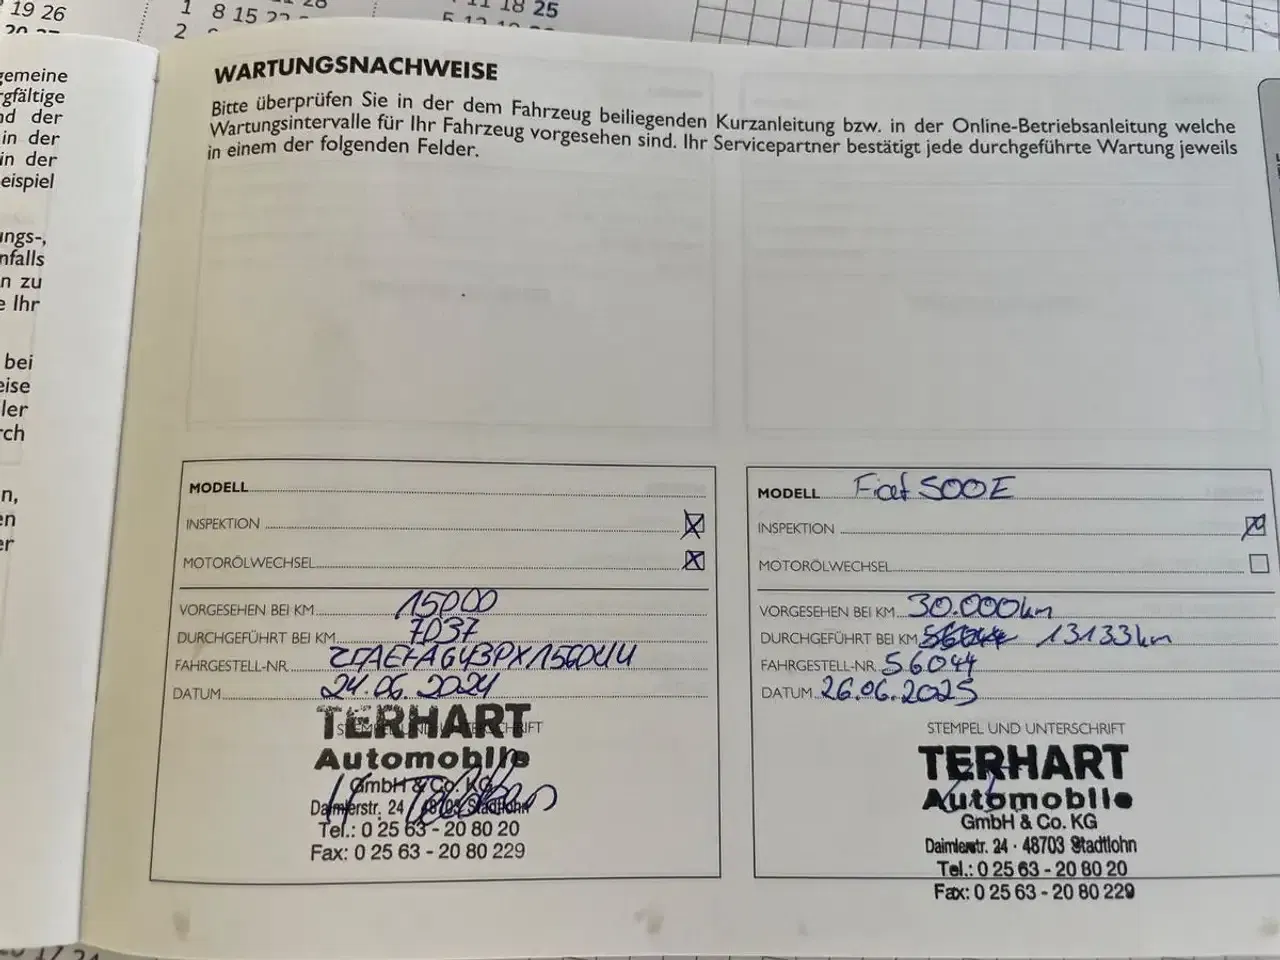 19 26
1 8 15 22
11 18 25
2
gemeine
rgfältige
nd der
in der
in der
eispiel
ungs-,
nfalls
n zu
e Ihr
bei
eise
ler
rch
n,
en
er
WARTUNGSNACHWEISE
Bitte überprüfen Sie in der dem Fahrzeug beiliegenden Kurzanleitung bzw. in der Online-Betriebsanleitung welche
Wartungsintervalle für Ihr Fahrzeug vorgesehen sind. Ihr Servicepartner bestätigt jede durchgeführte Wartung jeweils
in einem der folgenden Felder.
MODELL
INSPEKTION
MOTORÖLWECHSEL
VORGESEHEN BEI KM 15000
DURCHGEFÜHRT BEI KM 7037
FAHRGESTELL-NR. ZFAEFAG43PX156044
DATUM 24.06.2024
STEMPEL UND UNTERSCHRIFT
TERHART
Automobile
GmbH & Co. KG
Daimlerstr. 24 · 48703 Stadtlohn
Tel.: 0 25 63 - 20 80 20
Fax: 0 25 63 - 20 80 229
MODELL Fiat 500E
INSPEKTION
MOTORÖLWECHSEL
VORGESEHEN BEI KM 30.000km
DURCHGEFÜHRT BEI KM 56044 13133km
FAHRGESTELL-NR. 56044
DATUM 26.06.2025
STEMPEL UND UNTERSCHRIFT
TERHART
Automobile
GmbH & Co. KG
Daimlerstr. 24 · 48703 Stadtlohn
Tel.: 0 25 63 - 20 80 20
Fax: 0 25 63 - 20 80 229